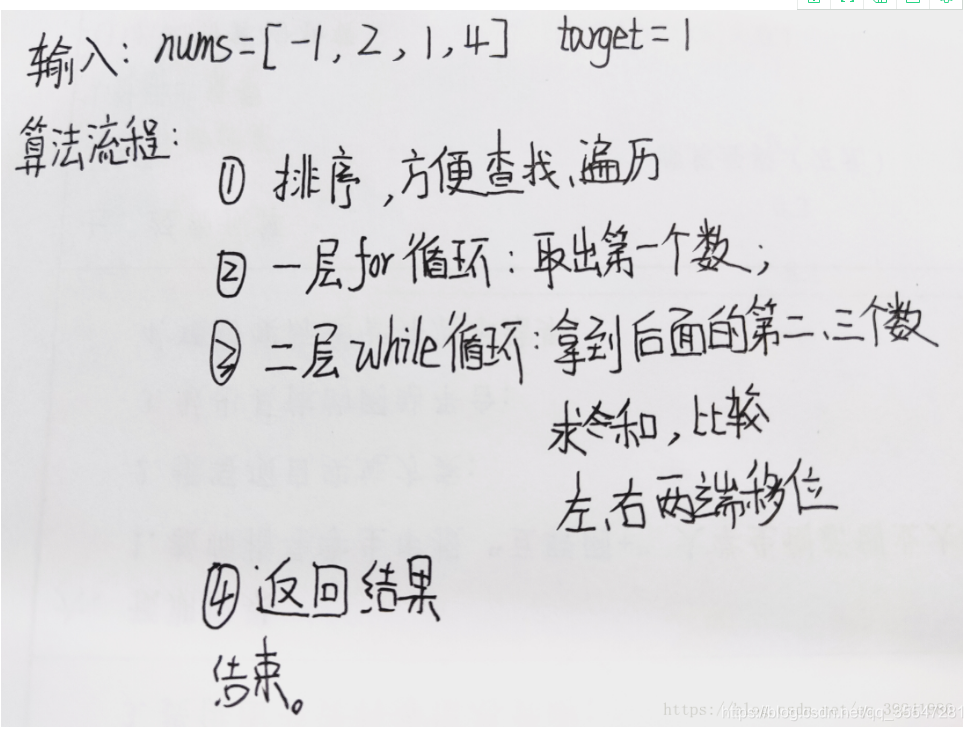 输入: nums=[-1,2,1,4] target=1
算法流程:
① 排序,方便查找、遍历
② 一层for循环:取出第一个数;
③ 二层while循环:拿到后面的第二、三个数
求和,比较
左、右两端移位
④ 返回结果
结束。